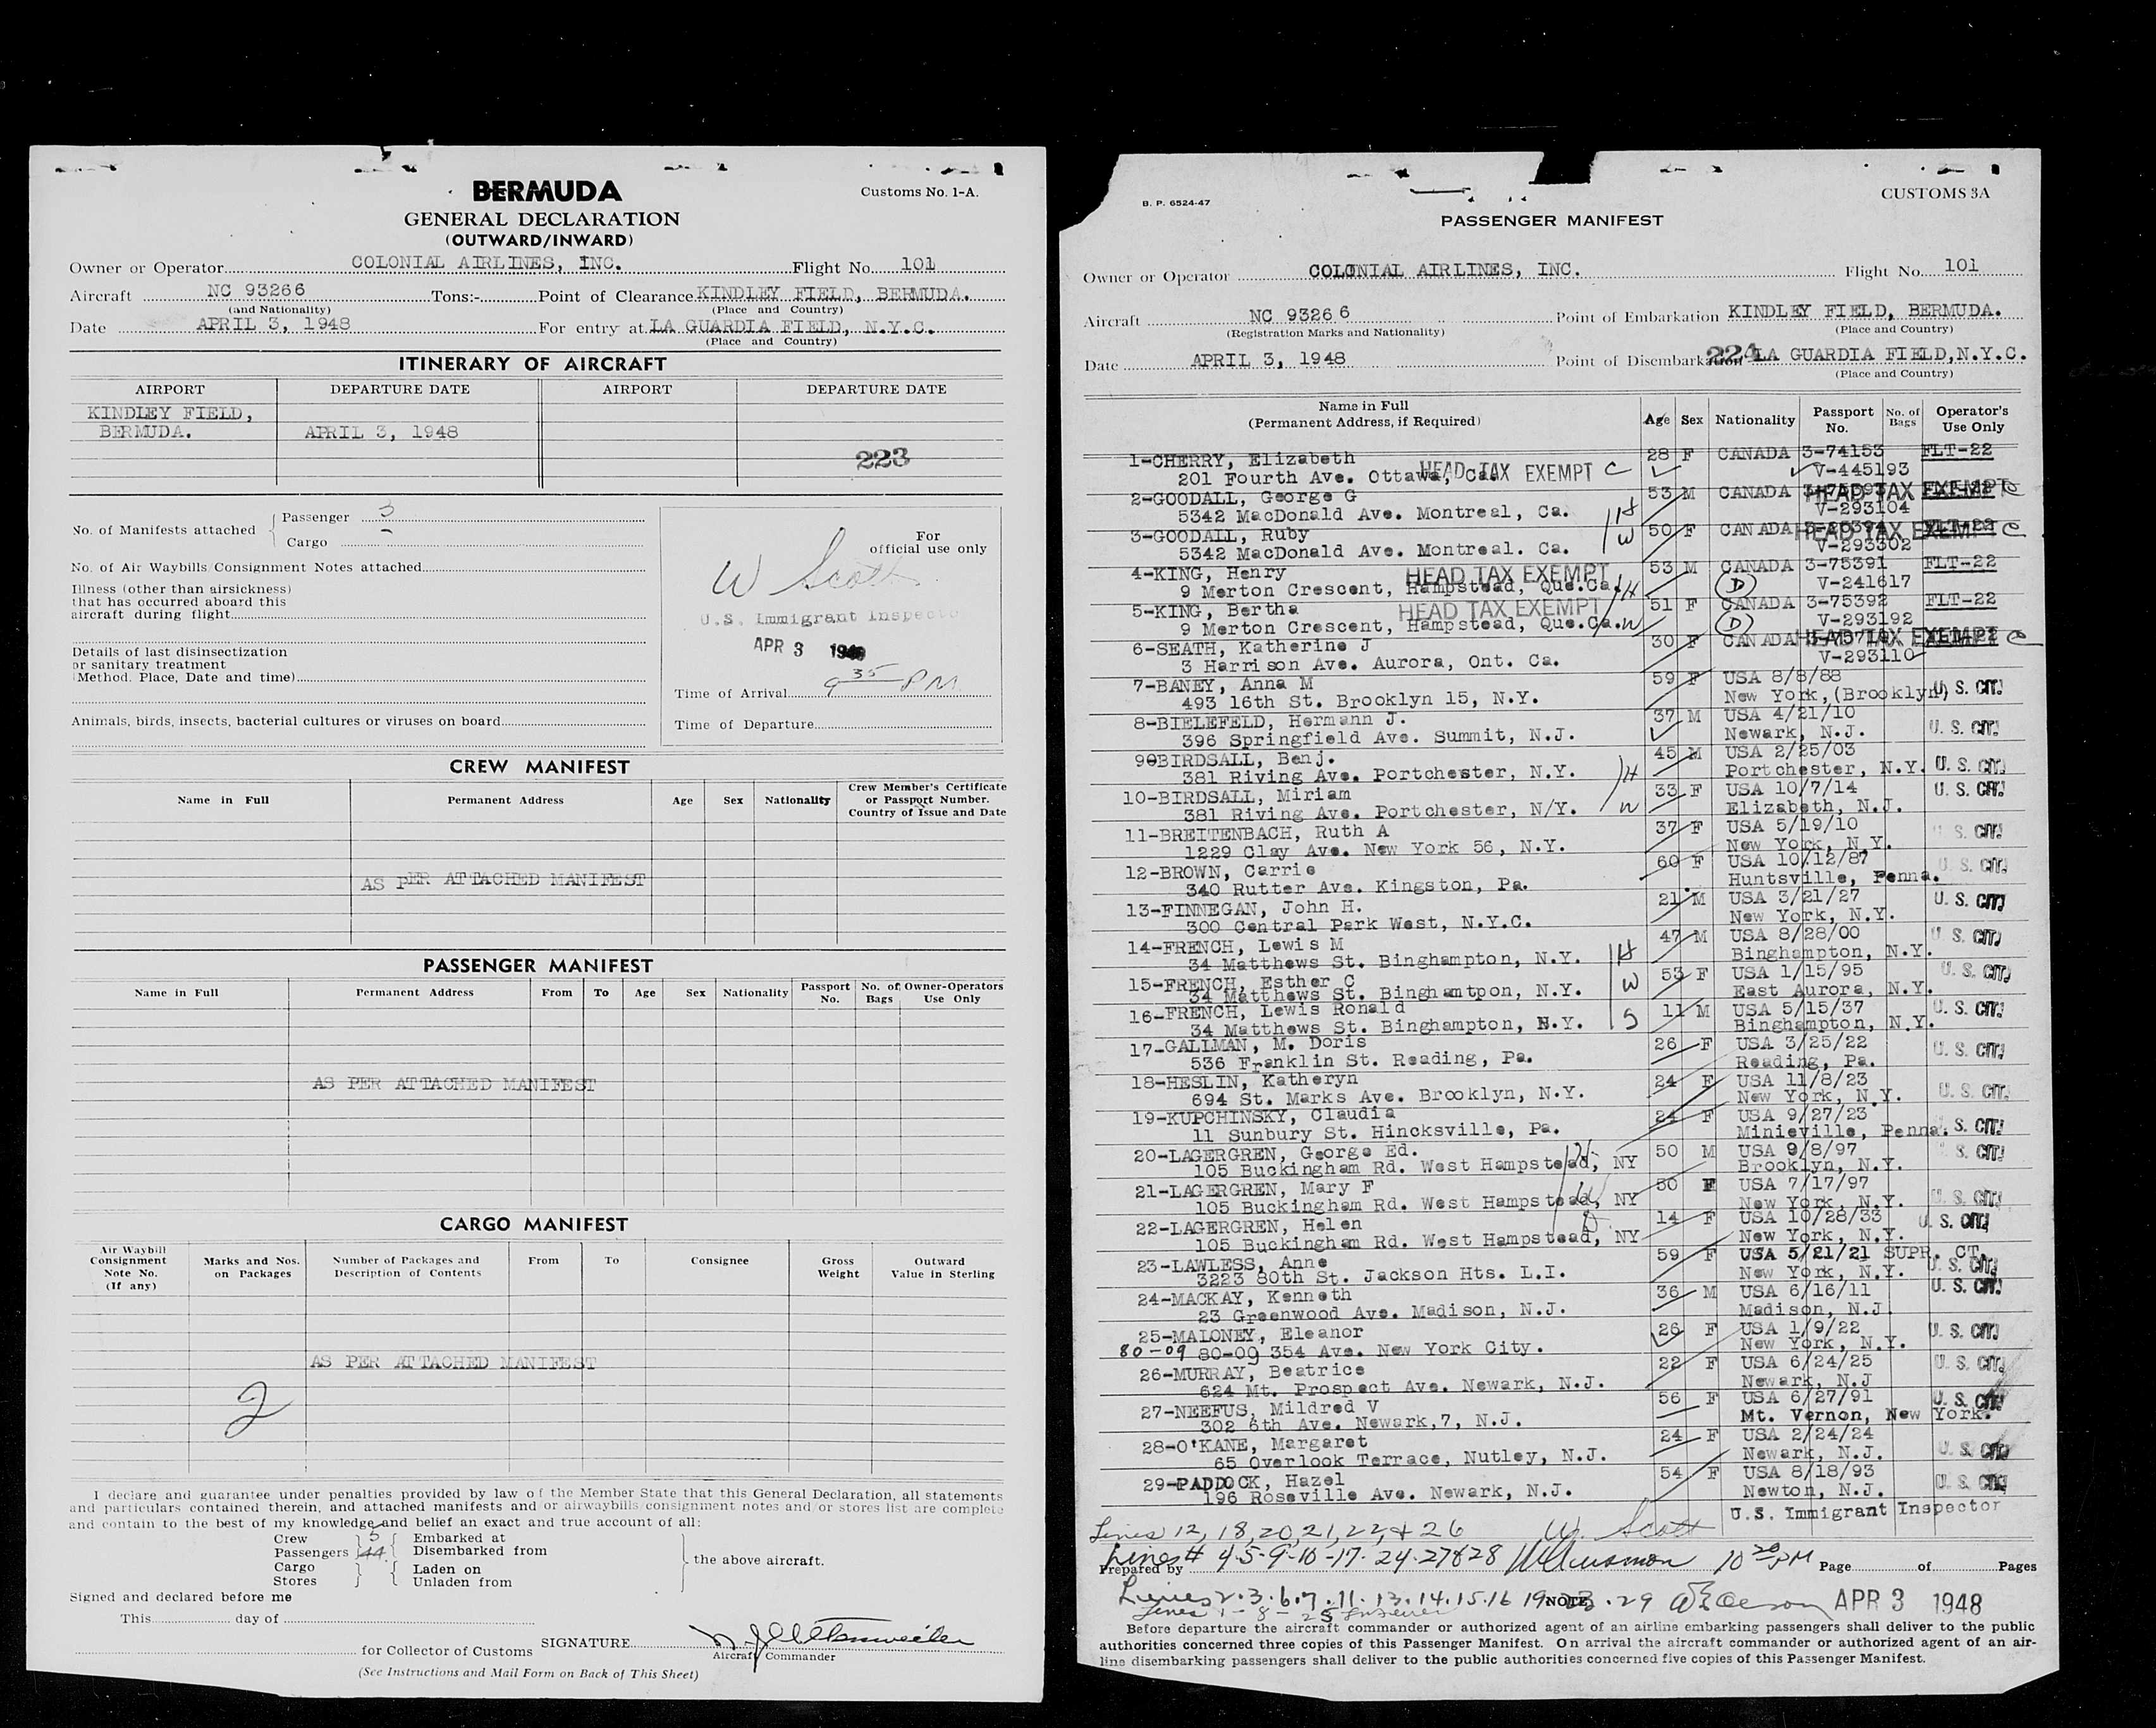 BERMUDA
Customs No. 1-A.
GENERAL DECLARATION
(OUTWARD/INWARD)
Owner or Operator COLONIAL AIRLINES, INC. Flight No. 101
Aircraft NC 93266 Tons:- Point of Clearance KINDLEY FIELD, BERMUDA.
(and Nationality) (Place and Country)
Date APRIL 3, 1948 For entry at LA GUARDIA FIELD, N.Y.C.
(Place and Country)
ITINERARY OF AIRCRAFT
AIRPORT DEPARTURE DATE AIRPORT DEPARTURE DATE
KINDLEY FIELD,
BERMUDA. APRIL 3, 1948
223
No. of Manifests attached { Passenger 3
Cargo -
For
official use only
No. of Air Waybills/Consignment Notes attached
W Scott
Illness (other than airsickness)
that has occurred aboard this
aircraft during flight
U.S. Immigrant Inspector
APR 3 1948
Details of last disinsectization
or sanitary treatment
(Method, Place, Date and time)
Time of Arrival 9 35 PM
Animals, birds, insects, bacterial cultures or viruses on board
Time of Departure
CREW MANIFEST
Name in Full Permanent Address Age Sex Nationality Crew Member's Certificate
or Passport Number.
Country of Issue and Date
AS PER ATTACHED MANIFEST
PASSENGER MANIFEST
Name in Full Permanent Address From To Age Sex Nationality Passport No. No. of Bags Owner-Operators Use Only
AS PER ATTACHED MANIFEST
CARGO MANIFEST
Air Waybill Consignment Note No. (If any) Marks and Nos. on Packages Number of Packages and Description of Contents From To Consignee Gross Weight Outward Value in Sterling
AS PER ATTACHED MANIFEST
2
I declare and guarantee under penalties provided by law of the Member State that this General Declaration, all statements
and particulars contained therein, and attached manifests and/or airwaybills/consignment notes and/or stores list are complete
and contain to the best of my knowledge and belief an exact and true account of all:
Crew 5 Embarked at
Passengers 44 Disembarked from
Cargo Laden on
Stores Unladen from
the above aircraft.
Signed and declared before me
This day of
for Collector of Customs SIGNATURE
Aircraft Commander
(See Instructions and Mail Form on Back of This Sheet)
B. P. 6524-47
CUSTOMS 3A
PASSENGER MANIFEST
Owner or Operator COLONIAL AIRLINES, INC. Flight No. 101
Aircraft NC 93266 Point of Embarkation KINDLEY FIELD, BERMUDA.
(Registration Marks and Nationality) (Place and Country)
Date APRIL 3, 1948 Point of Disembarkation 224 LA GUARDIA FIELD,N.Y.C.
(Place and Country)
Name in Full
(Permanent Address, if Required) Age Sex Nationality Passport No. No. of Bags Operator's Use Only
1-CHERRY, Elizabeth 28 F CANADA 3-74153 FLT-22
201 Fourth Ave. Ottawa, Ca. HEAD TAX EXEMPT C V-445193
2-GOODALL, George G 53 M CANADA HEAD TAX EXEMPT C
5342 MacDonald Ave. Montreal, Ca. H V-293104
3-GOODALL, Ruby 50 F CANADA HEAD TAX EXEMPT C
5342 MacDonald Ave. Montreal. Ca. W V-293302
4-KING, Henry HEAD TAX EXEMPT 53 M CANADA 3-75391 FLT-22
9 Merton Crescent, Hampstead, Que.Ca. H (D) V-241617
5-KING, Bertha HEAD TAX EXEMPT 51 F CANADA 3-75392 FLT-22
9 Merton Crescent, Hampstead, Que.Ca. W (D) V-293192
6-SEATH, Katherine J 30 F CANADA HEAD TAX EXEMPT C
3 Harrison Ave. Aurora, Ont. Ca. V-293110
7-BANEY, Anna M 59 F USA 8/8/88
493 16th St. Brooklyn 15, N.Y. New York,(Brooklyn) U. S. CIT.
8-BIELEFELD, Hermann J. 37 M USA 4/21/10
396 Springfield Ave. Summit, N.J. Newark, N.J. U. S. CIT.
9-BIRDSALL, Benj. 45 M USA 2/25/03
381 Riving Ave. Portchester, N.Y. H Portchester, N.Y. U. S. CIT.
10-BIRDSALL, Miriam 33 F USA 10/7/14 U. S. CIT.
381 Riving Ave. Portchester, N/Y. W Elizabeth, N.J.
11-BREITENBACH, Ruth A 37 F USA 5/19/10 U. S. CIT.
1229 Clay Ave. New York 56, N.Y. New York, N.Y.
12-BROWN, Carrie 60 F USA 10/12/87 U. S. CIT.
340 Rutter Ave. Kingston, Pa. Huntsville, Penna.
13-FINNEGAN, John H. 21 M USA 3/21/27 U. S. CIT.
300 Central Park West, N.Y.C. New York, N.Y.
14-FRENCH, Lewis M 47 M USA 8/28/00 U. S. CIT.
34 Matthews St. Binghampton, N.Y. H Binghampton, N.Y.
15-FRENCH, Esther C 53 F USA 1/15/95 U. S. CIT.
34 Matthews St. Binghamtpon, N.Y. W East Aurora, N.Y.
16-FRENCH, Lewis Ronald 11 M USA 5/15/37 U. S. CIT.
34 Matthews St. Binghampton, N.Y. S Binghampton, N.Y.
17-GALLMAN, M. Doris 26 F USA 3/25/22 U. S. CIT.
536 Franklin St. Reading, Pa. Reading, Pa.
18-HESLIN, Katheryn 24 F USA 11/8/23 U. S. CIT.
694 St. Marks Ave. Brooklyn, N.Y. New York, N.Y.
19-KUPCHINSKY, Claudia 24 F USA 9/27/23
11 Sunbury St. Hincksville, Pa. Minieville, Penna. U. S. CIT.
20-LAGERGREN, George Ed. 50 M USA 9/8/97 U. S. CIT.
105 Buckingham Rd. West Hampstead, NY H Brooklyn, N.Y.
21-LAGERGREN, Mary F 50 F USA 7/17/97
105 Buckingham Rd. West Hampstead, NY W New York, N.Y. U. S. CIT.
22-LAGERGREN, Helen D 14 F USA 10/28/33 U. S. CIT.
105 Buckingham Rd. West Hampstead, NY New York, N.Y.
23-LAWLESS, Anne 59 F USA 5/21/21 SUPR. CT.
3223 80th St. Jackson Hts. L.I. New York, N.Y. U. S. CIT.
24-MACKAY, Kenneth 36 M USA 6/16/11 U. S. CIT.
23 Greenwood Ave. Madison, N.J. Madison, N.J
25-MALONEY, Eleanor 26 F USA 1/9/22 U. S. CIT.
80-09 80-09 354 Ave. New York City. New York, N.Y.
26-MURRAY, Beatrice 22 F USA 6/24/25 U. S. CIT.
624 Mt. Prospect Ave. Newark, N.J. Newark, N.J
27-NEEFUS, Mildred V 56 F USA 6/27/91 U. S. CIT.
302 6th Ave. Newark,7, N.J. Mt. Vernon, New York.
28-O'KANE, Margaret 24 F USA 2/24/24
65 Overlook Terrace, Nutley, N.J. Newark, N.J. U. S. CIT.
29-PADDOCK, Hazel 54 F USA 8/18/93
196 Roseville Ave. Newark, N.J. Newton, N.J. U. S. CIT.
U.S. Immigrant Inspector
Lines 12, 18, 20, 21, 22, & 26 W. Scott
Lines # 4-5-9-10-17-24-27&28 10 20 PM
Prepared by Page of Pages
Lines 2.3.6.7.11.13.14.15.16 19 23.29 APR 3 1948
Lines 1-8-25
NOTE
Before departure the aircraft commander or authorized agent of an airline embarking passengers shall deliver to the public
authorities concerned three copies of this Passenger Manifest. On arrival the aircraft commander or authorized agent of an air-
line disembarking passengers shall deliver to the public authorities concerned five copies of this Passenger Manifest.